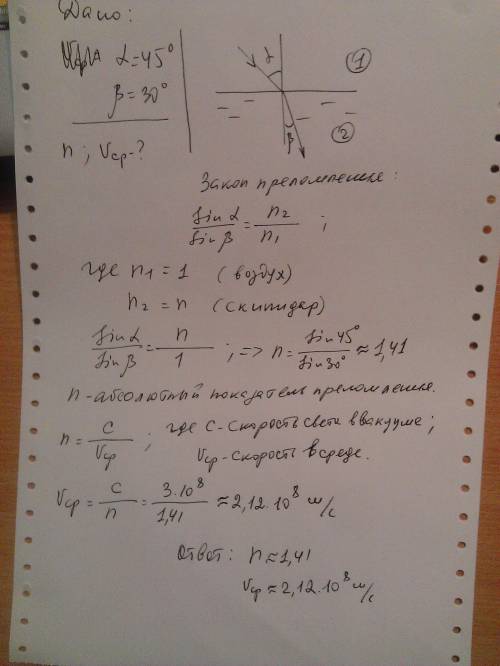 Дано:
α=45°
β=30°
n ; Vср-?
α
1
β
2
Закон преломления:
Sin α / Sin β = n2 / n1 ;
где n1 = 1 (воздух)
n2 = n (скипидар)
Sin α / Sin β = n / 1 ; => n = Sin 45° / Sin 30° ≈ 1,41
n - абсолютный показатель преломления.
n = C / Vср ; где C - скорость света в вакууме ;
Vср - скорость в среде.
Vср = C / n = 3·10⁸ / 1,41 ≈ 2,12·10⁸ м/с
Ответ: n ≈ 1,41
Vср ≈ 2,12·10⁸ м/с